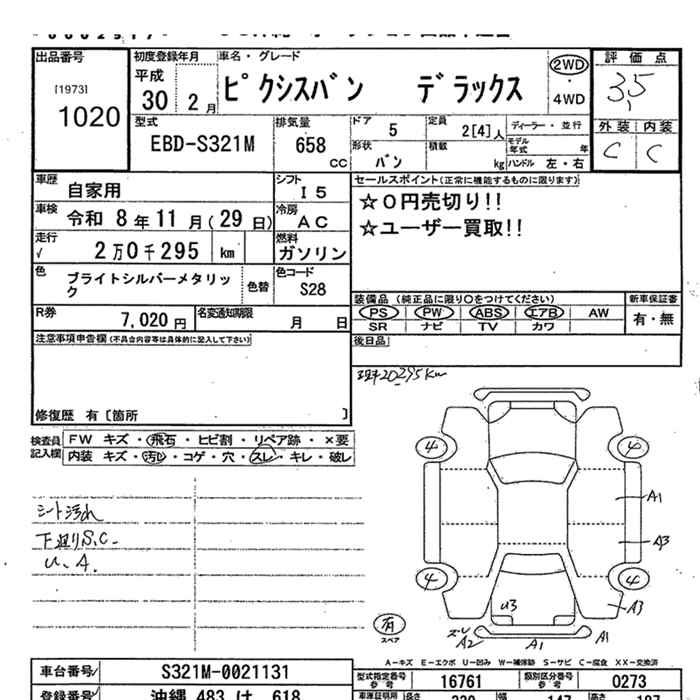 出品番号
[1973]
1020
初度登録年月
平成
30年 2月
車名・グレード
ピクシスバン デラックス
2WD
・
4WD
評価点
3.5
外装 内装
C C
型式
EBD-S321M
排気量
658 cc
ドア 5
定員 2[4]人
ディーラー・並行
形状 バン
積載 kg
モデル年式 年
ハンドル 左・右
車歴 自家用
シフト I5
車検 令和 8年11月(29日)
冷房 AC
走行 √ 2万0千295 km
燃料 ガソリン
色 ブライトシルバーメタリック
色替
色コード S28
R券 7,020円
名変通知期限 月 日
セールスポイント(正常に機能するものに限ります)
☆0円売切り!!
☆ユーザー買取!!
装備品(純正品に限り○をつけてください)
新車保証書
PS PW ABS エアB AW
有・無
SR ナビ TV カワ
後日品
注意事項申告欄(不具合内容等は具体的に記入して下さい)
修復歴 有[箇所 ]
現20295km
検査員記入欄
FW キズ・飛石・ヒビ割・リペア跡・×要
内装 キズ・汚れ・コゲ・穴・スレ・キレ・破レ
シート汚れ
下廻りS.C.
U.A.
4 4
A1
A3
4 4
A3
U3
有
スペア
スレ
A2
A1
A1
A-キズ E-エクボ U-凹み W-補修跡 S-サビ C-腐食 XX-交換済
車台番号 S321M-0021131
型式指定番号 16761
類別区分番号 0273
登録番号 沖縄 483 け 618